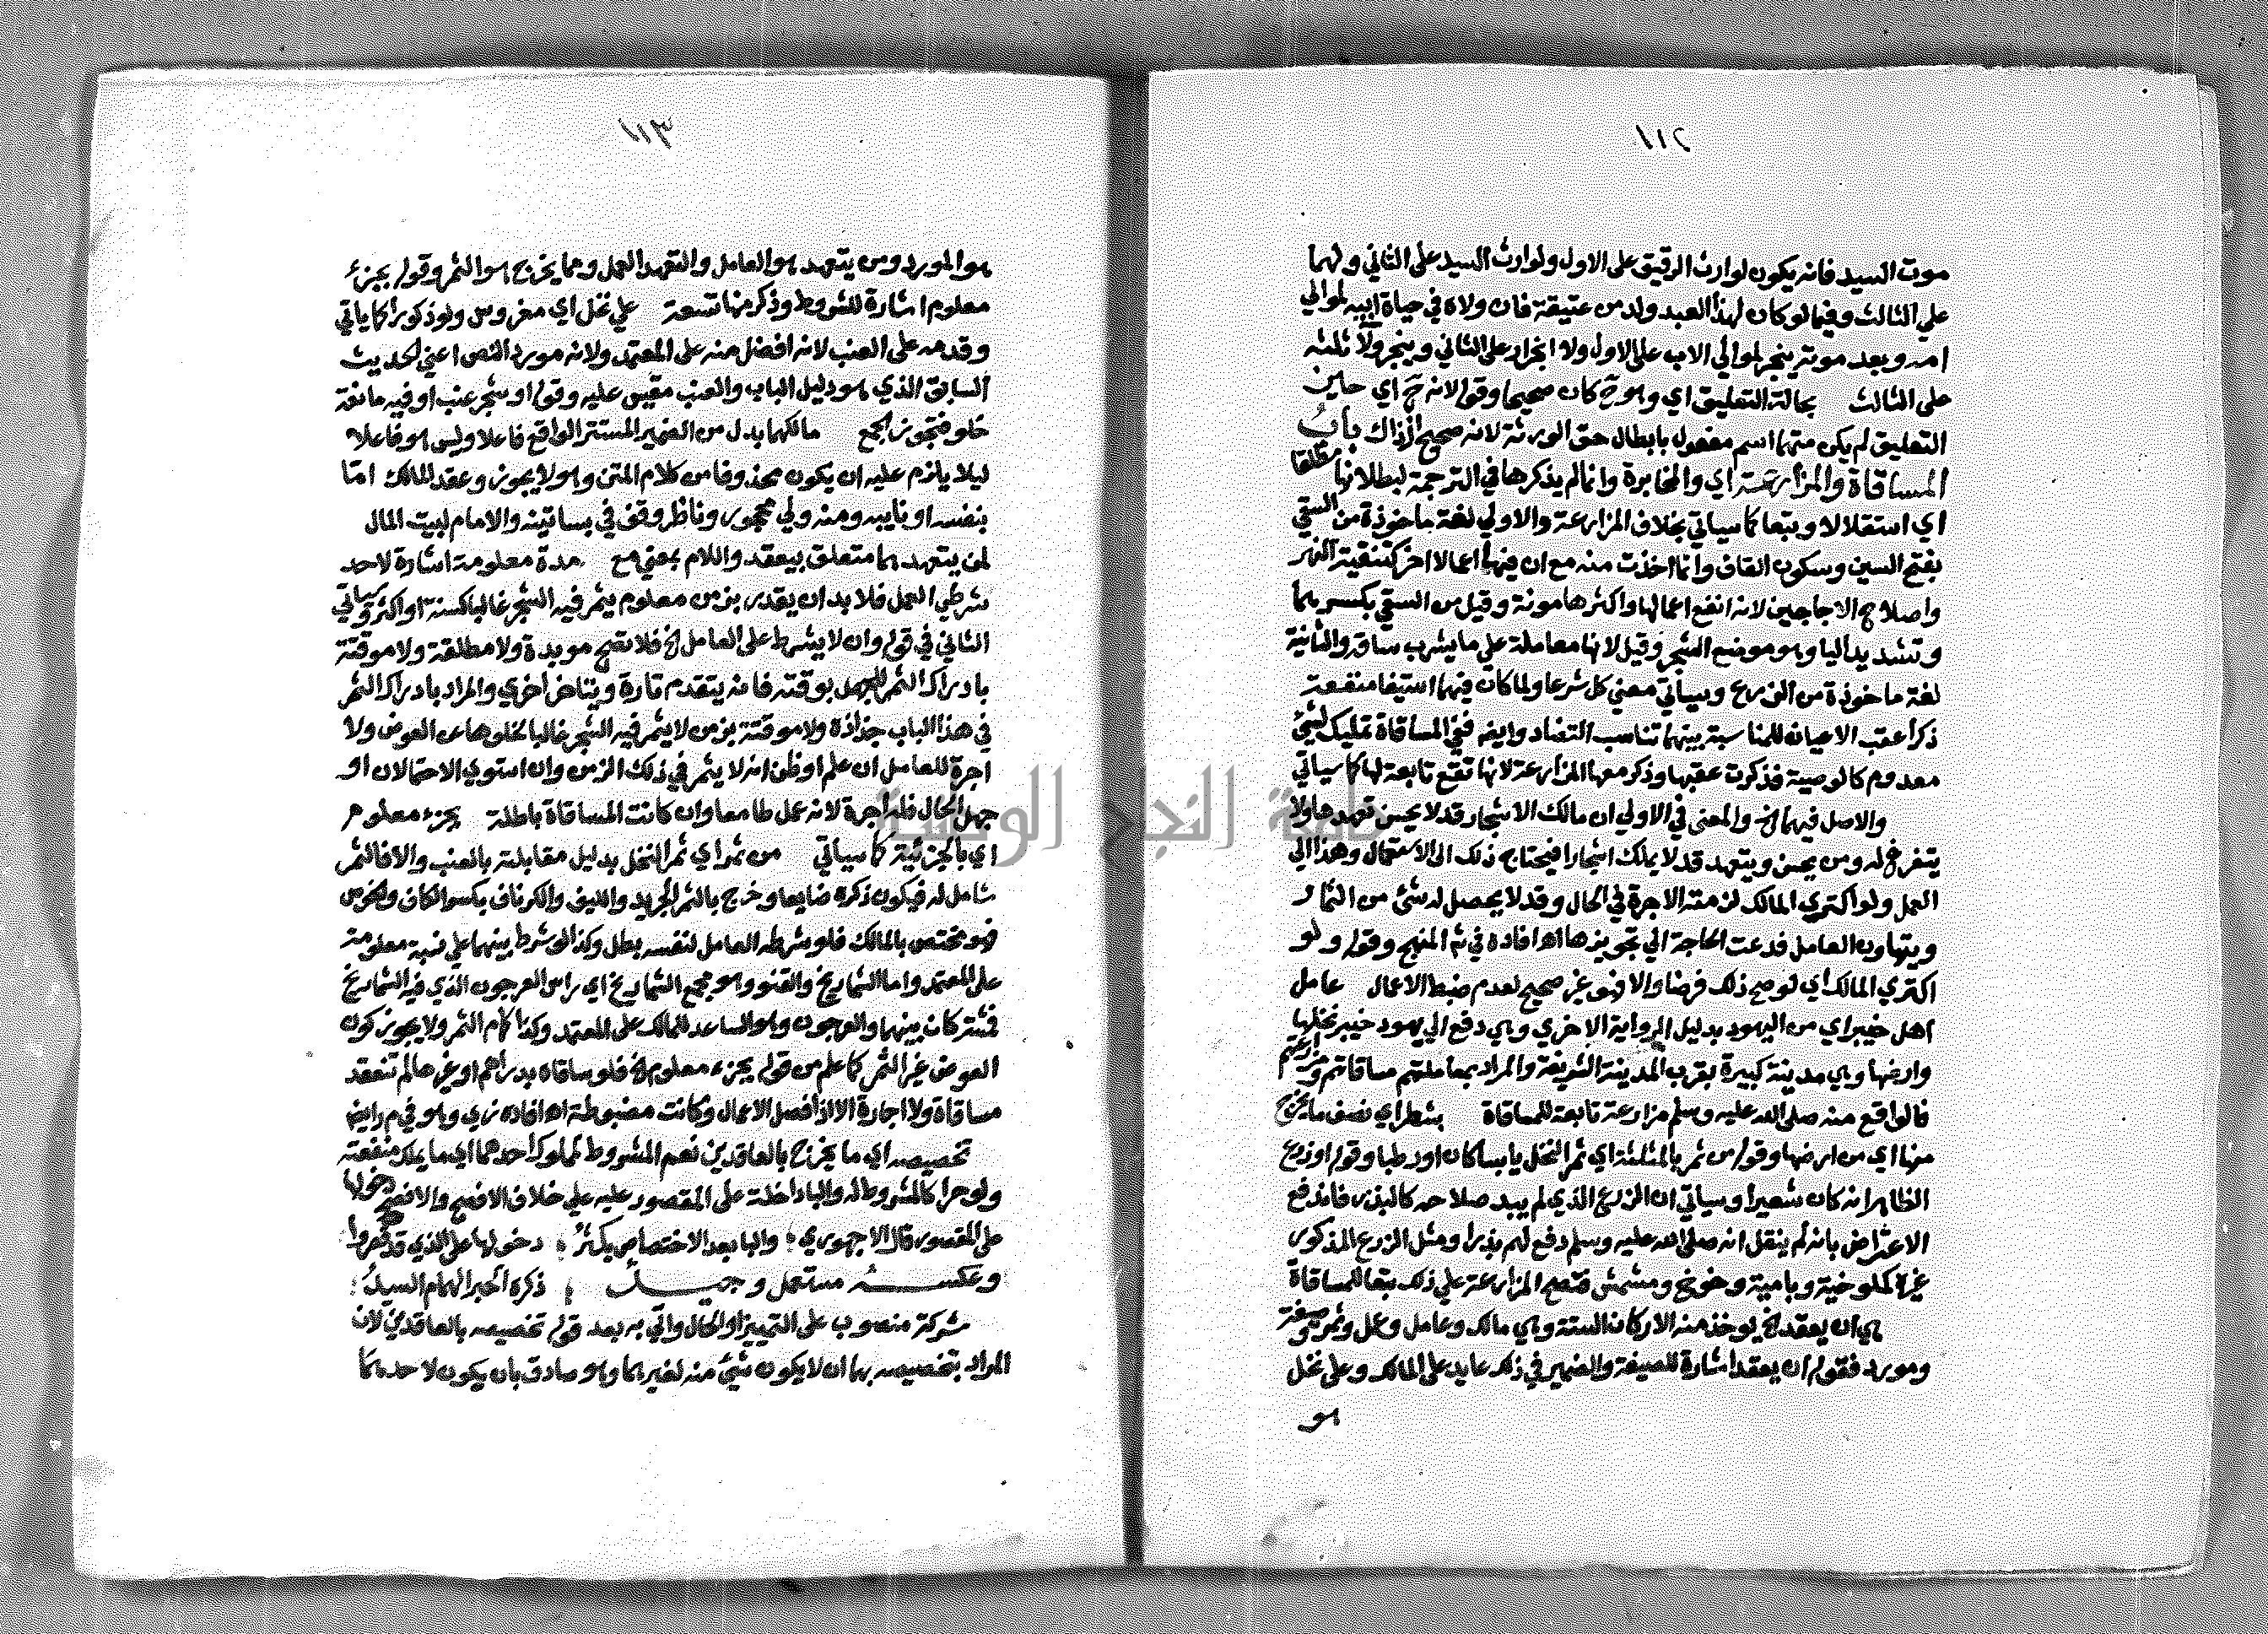 ١١٢
موت السيد فانه يكون لوارث الرقيق على الاول ولوارث السيد على الثاني ولهما
على الثالث وفيما لو كان لهذا العبد ولد من عتيقة فان ولاه في حياة ابيه لموالي
امه وبعد موته ينجر لموالي الاب على الاول ولا انجرار على الثاني وينجر ولا ثلثه
على الثالث بحالة التعليق اي وهو ح كان صحيحا وقوله لانه ح اي حين
التعليق لم يكن متهما اسم مفعول بابطال حق الورثة لانه صحيح اذ ذاك باب
المساقاة والمزارعة اي والمخابرة وانما لم يذكرها في الترجمة لبطلانها مطلقا
اي استقلالا وتبعا كما سياتي بخلاف المزارعة والاولي لغة ماخوذة من السقي
بفتح السين وسكون القاف وانما اخذت منه مع ان فيها اعمالا اخر كتنقية النهر
واصلاح الاجاجين لانه انفع اعمالها واكثرها مونة وقيل من السقي بكسرها
وتشديد اليا وهو موضع الشجر وقيل لانها معاملة على ما يشرب بساق والثانية
لغة ماخوذة من الزرع وسياتي معني كل شرعا ولما كان فيهما استيفا منفعة
ذكرا عقب الاعيان للمناسبة بينهما تناسب التضاد وايضا ففي المساقاة تمليك لشيئ
معدوم كالوصية فذكرت عقبها وذكر معها المزارعة لانها تقع تابعة لها كما سياتي
والاصل فيهما الخ والمعنى في الاولي ان مالك الاشجار قد لا يحسن تعهدها ولا
يتفرغ له ومن يحسن ويتعهد قد لا يملك اشجارا فيحتاج ذلك الى الاستعمال وهذا الي
العمل ولو اكتري المالك لزمته الاجرة في الحال وقد لا يحصل له شئ من الثمار
ويتهاون العامل فدعت الحاجة الي تجويزها اهـ افاده في ش المنهج وقوله ولو
اكتري المالك اي لو صح ذلك فرضا والا فهو غير صحيح لعدم ضبط الاعمال عامل
اهل خيبر اي من اليهود بدليل الرواية الاخري وهي دفع الي يهود خيبر نخلها
وارضها وهي مدينة كبيرة بقرب المدينة الشريفة والمراد بمعاملتهم مساقاتهم ومزارعتهم
فالواقع منه صلى الله عليه وسلم مزارعة تابعة للمساقاة بشطر اي نصف ما يخرج
منها اي من ارضها وقوله من ثمر بالمثلثة اي ثمر النخل يابسا كان او رطبا وقوله او زرع
الظاهر انه كان شعيرا وسياتي ان الزرع الذي لم يبد صلاحه كالبذر فاندفع
الاعتراض بانه لم ينقل انه صلى الله عليه وسلم دفع لهم بذرا ومثل الزرع المذكور
غيره كملوخية وبامية وخوخ ومشمش فتصح المزارعة على ذلك تبعا للمساقاة
هي ان يعقد الخ يوخذ منه الاركان الستة وهي مالك وعامل وعمل وثمر وصيغة
ومورد فقوله ان يعقد اشارة للصيغة والضمير في ذلك عايد على المالك وعلى نخل
هو
١١٣
هو المورد ومن يتعهد هو العامل والتعهد العمل ومما يخرج هو الثمر وقوله بجزء
معلوم اشارة للشروط وذكر منها تسعة على نخل اي مغروس ولو ذكورا كما ياتي
وقدمه على العنب لانه افضل منه على المعتمد ولانه مورد النص اعني الحديث
السابق الذي هو دليل الباب والعنب مقيس عليه وقوله او شجر عنب او فيه مانعة
خلو فتجوز الجمع مالكها بدل من الضمير المستتر الواقع فاعلا وليس هو فاعلا
ليلا يلزم عليه ان يكون محذوفا من كلام المتن وهو لا يجوز وعقد للمالك اما
بنفسه او نايبه ومنه ولي محجور وناظر وقف في بساتينه والامام لبيت المال
لمن يتعهدها متعلق بيعقد واللام بمعني مع مدة معلومة اشارة لاحد
شرطي العمل فلا بد ان يقدر بزمن معلوم يثمر فيه الشجر غالبا كسنة او اكثر وسياتي
الثاني في قوله وان لا يشرط على العامل الخ فلا تصح مويدة ولا مطلقة ولا موقتة
بادراك الثمر للجهل بوقته فانه يتقدم تارة ويتاخر اخري والمراد بادراك الثمر
في هذا الباب جذاذه ولا موقتة بزمن لا يثمر فيه الشجر غالبا لخلوها عن العوض ولا
اجرة للعامل ان علم او ظن انه لا يثمر في ذلك الزمن وان استوي الاحتمالان او
جهل الحال فله اجرة لانه عمل طامعا وان كانت المساقاة باطلة بجزء معلوم
اي بالجزئية كما سياتي من ثمر اي ثمر النخل بدليل مقابلته بالعنب والا فالثمر
شامل له فيكون ذكره ضايعا وخرج بالثمر الجريد والليف والكرناف بكسر الكاف والخوص
فهو مختص بالمالك فلو شرطه العامل لنفسه بطل وكذا لو شرط بينهما على نسبة معلومة
على المعتمد واما الشماريخ والقنو وهو مجمع الشماريخ اي راس العرجون الذي فيه الشماريخ
فمشتركان بينهما والعرجون وهو الساعد للمالك على المعتمد وكذا كام الثمر ولا يجوز كون
العوض غير الثمر كما علم من قوله بجزء معلوم الخ فلو ساقاه بدراهم او غيرها لم تنعقد
مساقاة ولا اجارة الا اذا فصل الاعمال وكانت مضبوطة اهـ افاده زي وهو في م ر ايضا
تخصيصه اي ما يخرج بالعاقدين نعم المشروط لمملوك احدهما اي ما يملك منفعته
ولو حرا كالمشروط له والبا داخلة على المقصور عليه على خلاف الافصح والافصح دخولها
على المقصور قال الاجهوري والبا بعد الاختصاص يكثر دخولها على الذي قد قصروا
وعكسه مستعمل وجيد ذكره الحبر الهمام السيد
شركة منصوب على التمييز او الحال واتي به بعد قوله تخصيصه بالعاقدين لان
المراد بتخصيصه بهما ان لا يكون شيئ منه لغيرهما وهو صادق بان يكون لاحدهما